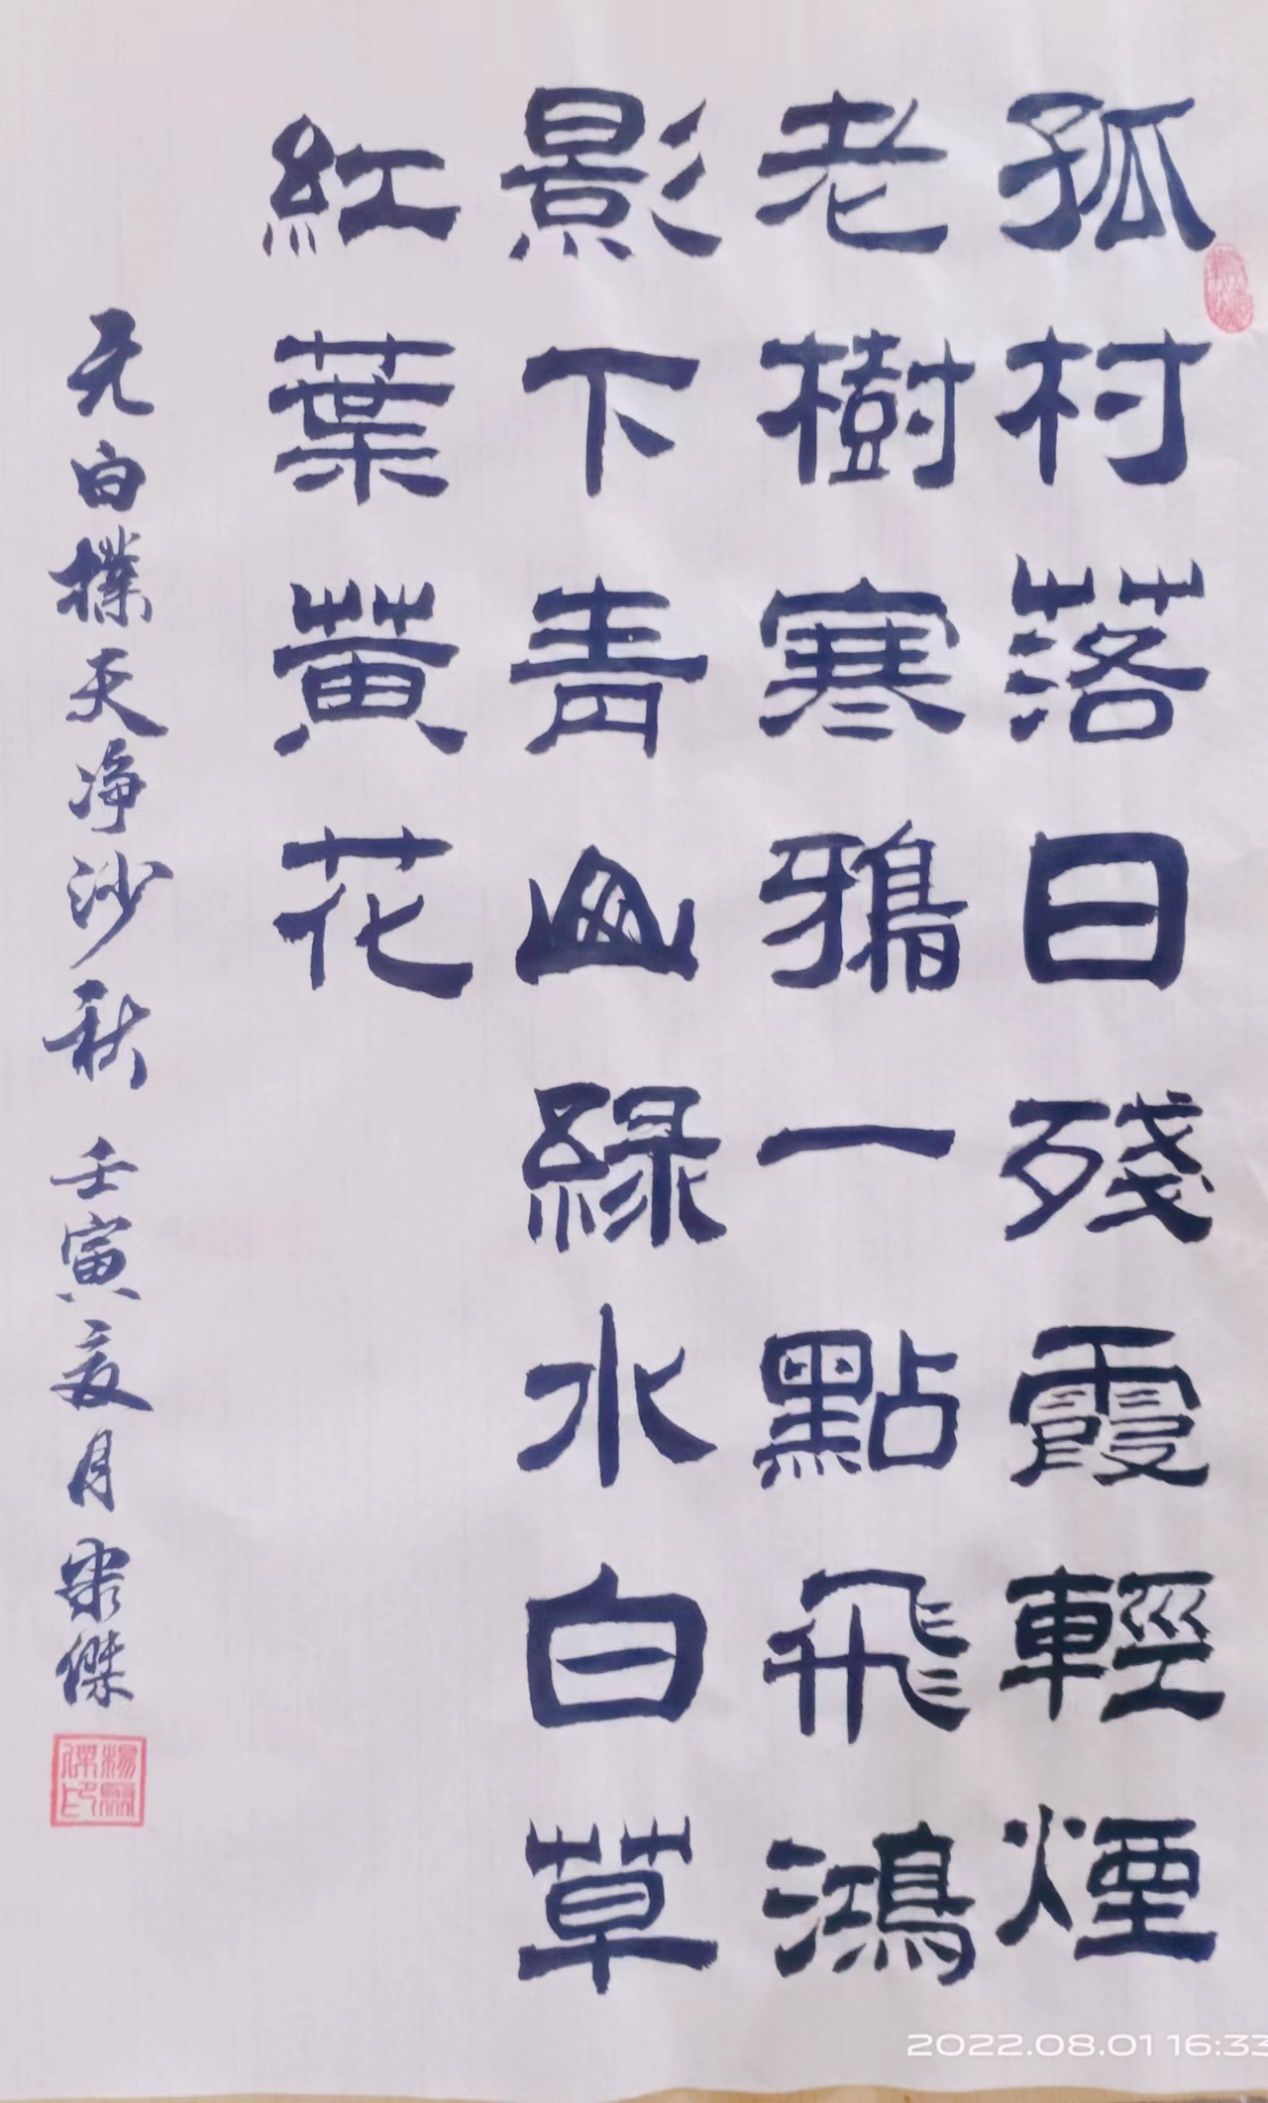 孤村落日殘霞輕煙
老樹寒鴉一點飛鴻
影下青山綠水白草
紅葉黃花
元白樸天净沙秋 壬寅夏月 傑
2022.08.01 16:33